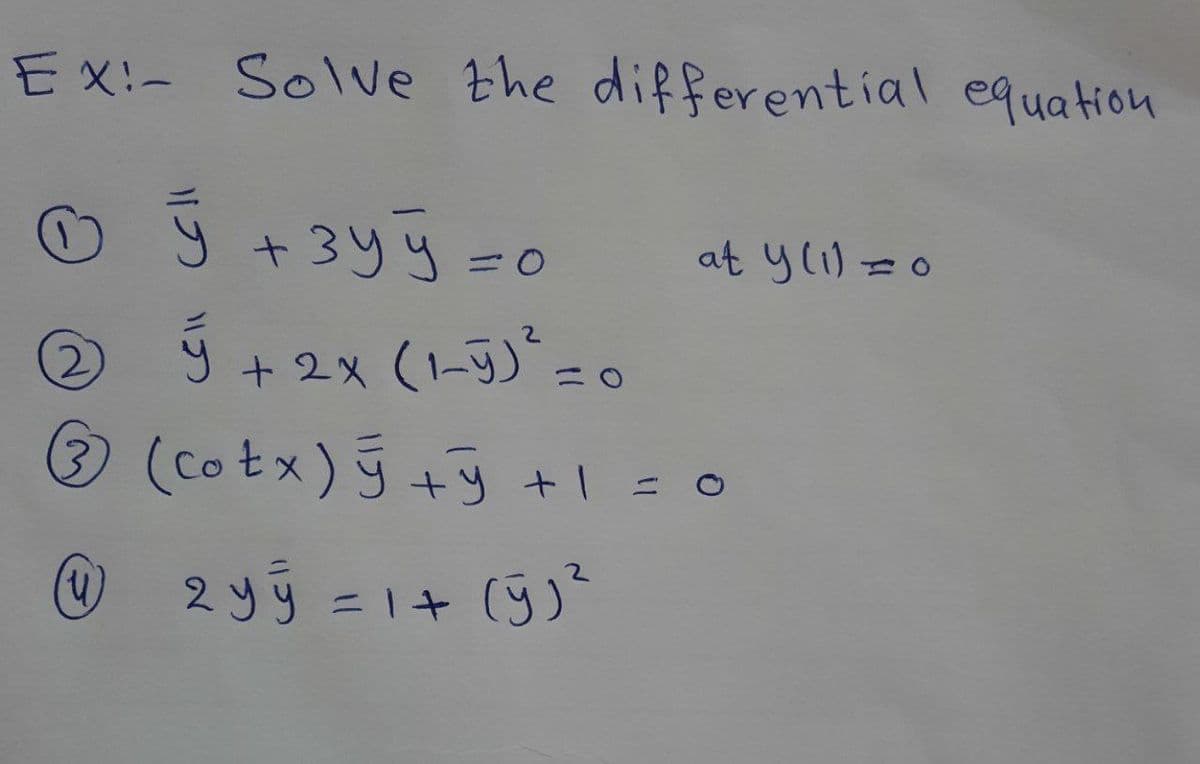 Ex:- Solve the differential equation
① y̿ + 3yȳ = 0 at y(1) = 0
② y̿ + 2x (1-ȳ)² = 0
③ (cotx) y̿ + ȳ + 1 = 0
④ 2yy̿ = 1 + (ȳ)²